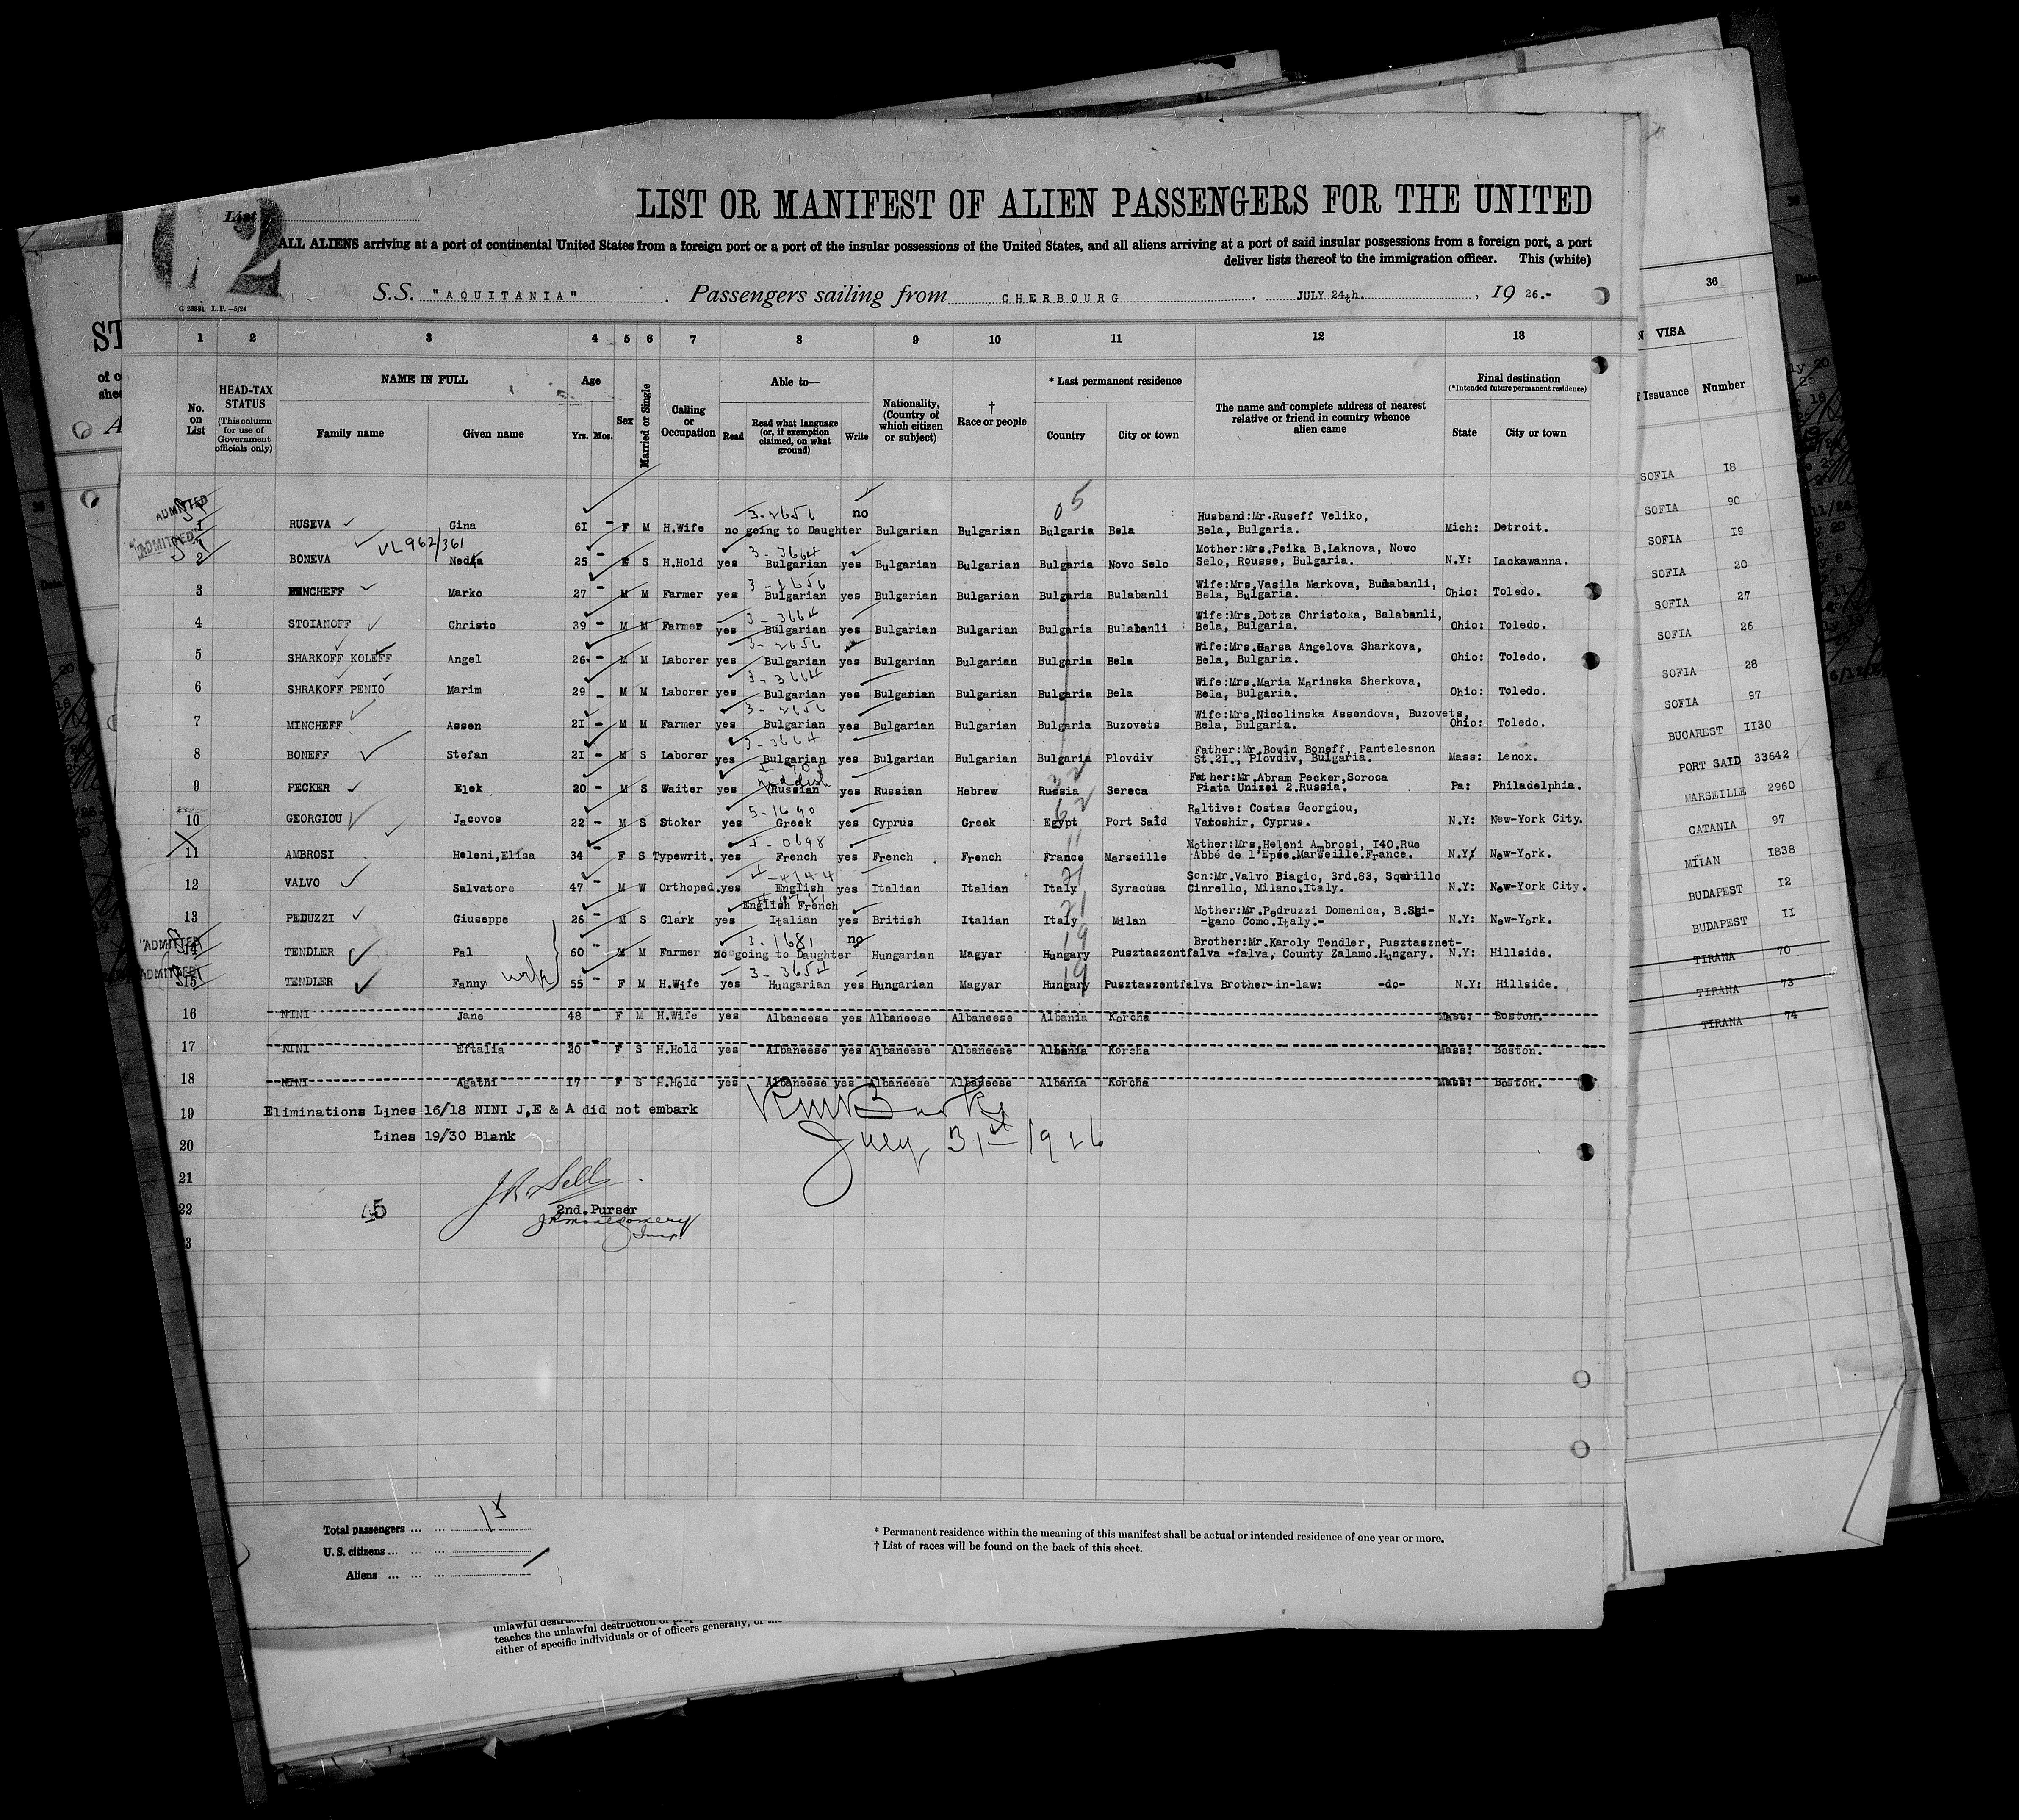 LIST OR MANIFEST OF ALIEN PASSENGERS FOR THE UNITED
List
ALL ALIENS arriving at a port of continental United States from a foreign port or a port of the insular possessions of the United States, and all aliens arriving at a port of said insular possessions from a foreign port, a port
deliver lists thereof to the immigration officer. This (white)
S.S. "AQUITANIA" Passengers sailing from CHERBOURG JULY 24th. , 19 26.-
G 23881 L.P.—5/24
1 2 3 4 5 6 7 8 9 10 11 12 13
No. on List
HEAD-TAX STATUS (This column for use of Government officials only)
NAME IN FULL
Family name Given name
Age
Yrs. Mos.
Sex
Married or Single
Calling or Occupation
Able to—
Read Read what language (or, if exemption claimed, on what ground) Write
Nationality, (Country of which citizen or subject)
† Race or people
* Last permanent residence
Country City or town
The name and complete address of nearest relative or friend in country whence alien came
Final destination
(*Intended future permanent residence)
State City or town
ADMITTED
3-2656 no 05 Husband:Mr.Ruseff Veliko,
1 RUSEVA Gina 61 - F M H.Wife no going to Daughter Bulgarian Bulgarian Bulgaria Bela Bela, Bulgaria. Mich: Detroit.
ADMITTED VL962/361 3-3664 Mother:Mrs.Peika B.Laknova, Novo
2 BONEVA Nedka 25 - F S H.Hold yes Bulgarian yes Bulgarian Bulgarian Bulgaria Novo Selo Selo, Rousse, Bulgaria. N.Y: Lackawanna.
3-2656 Wife:Mrs.Vasila Markova, Bulabanli,
3 PENCHEFF Marko 27 - M M Farmer yes Bulgarian yes Bulgarian Bulgarian Bulgaria Bulabanli Bela, Bulgaria. Ohio: Toledo.
3-3664 Wife:Mrs.Dotza Christoka, Balabanli,
4 STOIANOFF Christo 39 - M M Farmer yes Bulgarian yes Bulgarian Bulgarian Bulgaria Bulabanli Bela, Bulgaria. Ohio: Toledo.
3-2656 Wife:Mrs.Sarsa Angelova Sharkova,
5 SHARKOFF KOLEFF Angel 26 - M M Laborer yes Bulgarian yes Bulgarian Bulgarian Bulgaria Bela Bela, Bulgaria. Ohio: Toledo.
3-3664 Wife:Mrs.Maria Marinska Sherkova,
6 SHRAKOFF PENIO Marim 29 - M M Laborer yes Bulgarian yes Bulgarian Bulgarian Bulgaria Bela Bela, Bulgaria. Ohio: Toledo.
3-2656 Wife:Mrs.Nicolinska Assendova, Buzovets,
7 MINCHEFF Assen 21 - M M Farmer yes Bulgarian yes Bulgarian Bulgarian Bulgaria Buzovets Bela, Bulgaria. Ohio: Toledo.
3-3664 Father:Mr.Bowin Boneff, Pantelesnon
8 BONEFF Stefan 21 - M S Laborer yes Bulgarian yes Bulgarian Bulgarian Bulgaria Plovdiv St.21., Plovdiv, Bulgaria. Mass: Lenox.
Father:Mr.Abram Pecker,Soroca
9 PECKER Elek 20 - M S Waiter yes Russian yes Russian Hebrew Russia Sereca Piata Unizei 2.Russia. Pa: Philadelphia.
5-1690 62 Raltive: Costas Georgiou,
10 GEORGIOU Jacovos 22 - M S Stoker yes Greek yes Cyprus Greek Egypt Port Said Varoshir, Cyprus. N.Y: New-York City.
X 5-0698 11 Mother:Mrs.Heleni Ambrosi, 140.Rue
11 AMBROSI Heleni,Elisa 34 - F S Typewrit. yes French yes French French France Marseille Abbé de l'Epée.Marseille.France. N.Y: New-York.
21 Son:Mr.Valvo Biagio, 3rd.83, Squrillo
12 VALVO Salvatore 47 - M W Orthoped. yes English yes Italian Italian Italy Syracusa Cinrello, Milano.Italy. N.Y: New-York City.
English French 21 Mother:Mr.Pedruzzi Domenica, B.Sgi-
13 PEDUZZI Giuseppe 26 - M S Clark yes Italian yes British Italian Italy Milan -gano Como.Italy.- N.Y: New-York.
ADMITTED 3-1681 no 19 Brother:Mr.Karoly Tendler, Pusztasznet-
14 TENDLER Pal 60 - M M Farmer no going to Daughter Hungarian Magyar Hungary Pusztaszentfalva -falva, County Zalamo.Hungary. N.Y: Hillside.
ADMITTED wife 3-3654 19
15 TENDLER Fanny 55 - F M H.Wife yes Hungarian yes Hungarian Magyar Hungary Pusztaszentfalva Brother-in-law: -do- N.Y: Hillside.
16 NINI Jane 48 - F M H.Wife yes Albaneese yes Albaneese Albaneese Albania Korcha Mass: Boston.
17 NINI Eftalia 20 - F S H.Hold yes Albaneese yes Albaneese Albaneese Albania Korcha Mass: Boston.
18 NINI Agathi 17 F S H.Hold yes Albaneese yes Albaneese Albaneese Albania Korcha Mass: Boston.
19 Eliminations Lines 16/18 NINI J,E & A did not embark
20 Lines 19/30 Blank
July 31st 1926
21
J R Sell
22 2nd.Purser
JRMontgomery
3
Total passengers ... ... 15
U. S. citizens ... ... ...
Aliens ... ... ...
* Permanent residence within the meaning of this manifest shall be actual or intended residence of one year or more.
† List of races will be found on the back of this sheet.
unlawful destruction of
teaches the unlawful destruction of
either of specific individuals or of officers generally, of the
36
VISA
Issuance Number
SOFIA 18
SOFIA 90
SOFIA 19
SOFIA 20
SOFIA 27
SOFIA 26
SOFIA 28
SOFIA 97
BUCAREST 1130
PORT SAID 33642
MARSEILLE 2960
CATANIA 97
MILAN 1838
BUDAPEST 12
BUDAPEST 11
TIRANA 70
TIRANA 73
TIRANA 74